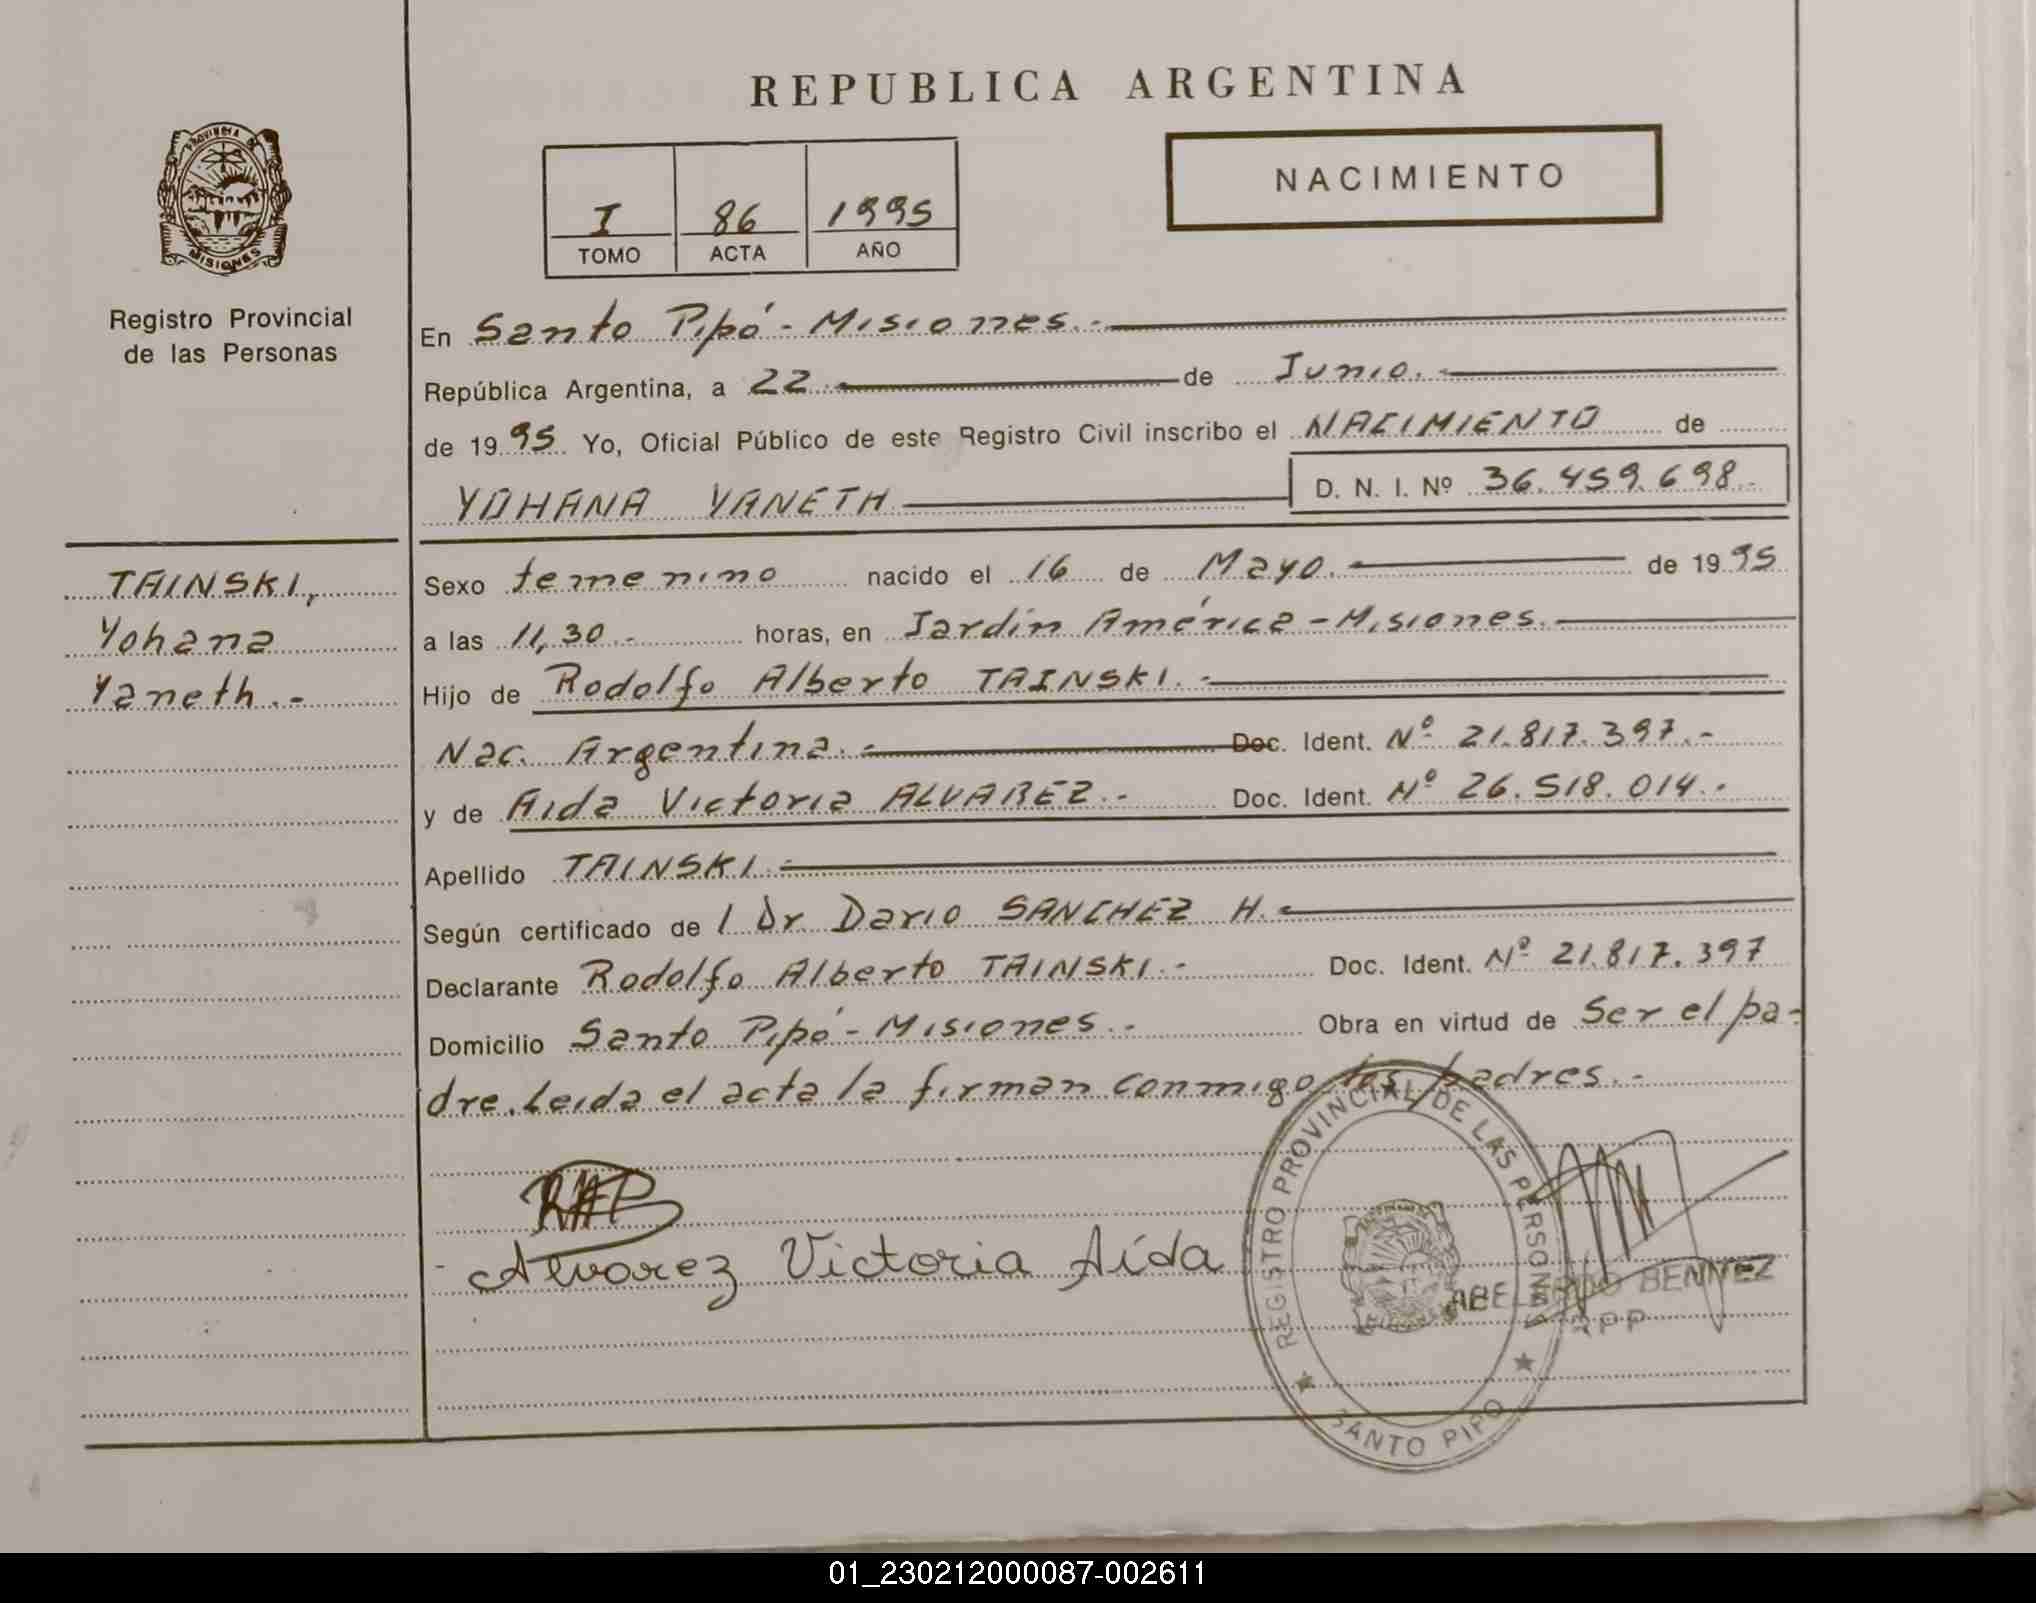 REPUBLICA ARGENTINA
PROVINCIA DE
MISIONES
Registro Provincial
de las Personas
NACIMIENTO
I 86 1995
TOMO ACTA AÑO
En Santo Pipó - Misiones.-
República Argentina, a 22 de Junio.-
de 1995 Yo, Oficial Público de este Registro Civil inscribo el NACIMIENTO de
YOHANA YANETH D. N. I. Nº 36.459.698.-
TAINSKI,
Yohana
Yaneth.-
Sexo femenino nacido el 16 de Mayo. de 1995
a las 11,30.- horas, en Jardín América - Misiones.-
Hijo de Rodolfo Alberto TAINSKI.-
Nac. Argentina.- Doc. Ident. Nº 21.817.397.-
y de Aida Victoria ALVAREZ.- Doc. Ident. Nº 26.518.014.-
Apellido TAINSKI.-
Según certificado de l Dr. Dario SANCHEZ H.-
Declarante Rodolfo Alberto TAINSKI.- Doc. Ident. Nº 21.817.397
Domicilio Santo Pipó - Misiones.- Obra en virtud de Ser el pa-
dre. Leida el acta la firman conmigo los padres.-
Alvarez Victoria Aída
REGISTRO PROVINCIAL DE LAS PERSONAS
SANTO PIPO
ABELARDO BENITEZ
RPP
01_230212000087-002611